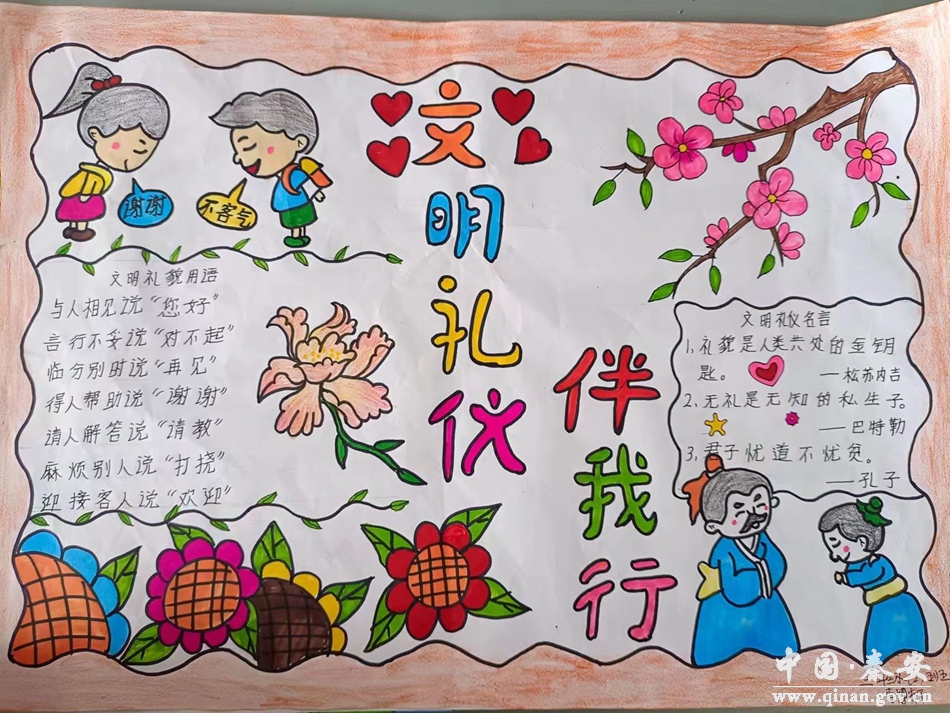 文明礼仪
伴我行
谢谢
不客气
文明礼貌用语
与人相见说“您好”
言行不妥说“对不起”
临分别时说“再见”
得人帮助说“谢谢”
请人解答说“请教”
麻烦别人说“打挠”
迎接客人说“欢迎”
文明礼仪名言
1、礼貌是人类共处的金钥
匙。 ——松苏内吉
2、无礼是无知的私生子。
——巴特勒
3、君子忧道不忧贫。
——孔子
中国·秦安
www.qinan.gov.cn